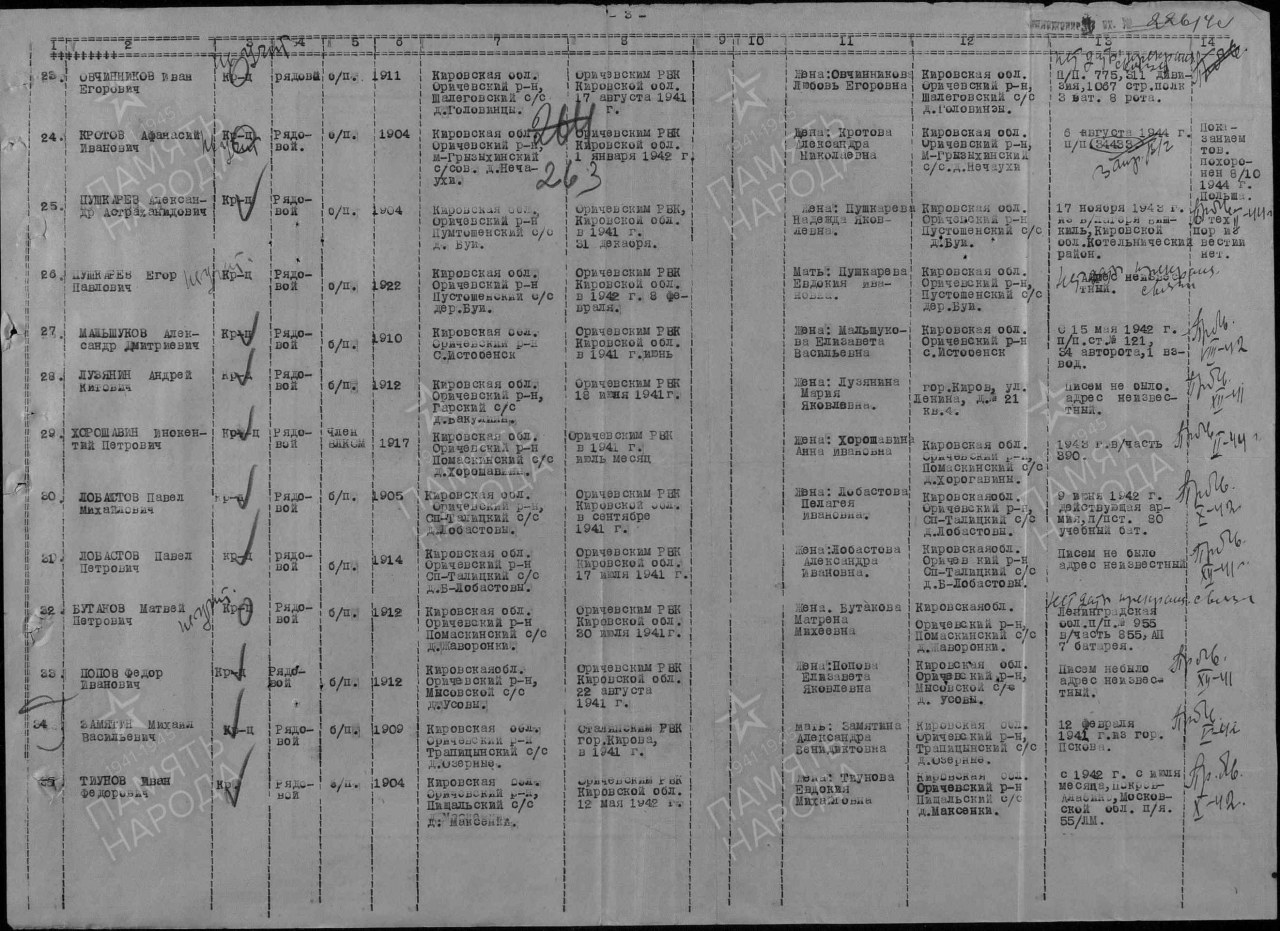 - 3 -
226/41
1 2 3 4 5 6 7 8 9 10 11 12 13 14
23. ОВЧИННИКОВ Иван Егорович Кр-ц рядовой б/п. 1911
Кировская обл. Оричевский р-н, Шалеговский с/с д.Головинцы.
Оричевским РВК Кировской обл. 17 августа 1941 г.
Жена:Овчинникова Любовь Егоровна
Кировская обл. Оричевский р-н, Шалеговский с/с д.Головинцы.
п/п. 775,311 дивизия,1067 стр.полк 3 бат. 8 рота.
24. КРОТОВ Афанасий Иванович Кр-ц Рядовой. б/п. 1904
Кировская обл. Оричевский р-н, М-Грызыхинский с/сов. д.Нечаухи.
264
263
Оричевским РВК Кировской обл. 1 января 1942 г.
Жена: Кротова Александра Николаевна
Кировская обл. Оричевский р-н, М-Грызихинский с/с.д.Нечаухи
6 августа 1944 г. п/п 31433
Показанием тов. похоронен 8/10 1944 г. Польша.
25. ПУШКАРЕВ Александр Астраханидович Кр-ц Рядовой б/п. 1904
Кировская обл. Оричевский р-н Пумтошенский с/с д. Буи.
Оричевским РВК, Кировской обл. в 1941 г. 31 декабря.
Жена: Пушкарева Надежда Яковлевна.
Кировская обл. Оричевский р-н Пустошенский с/с д.Буи.
17 ноября 1943 г. из в/лагеря киль,Кировской обл.Котельнический район.
С тех пор известий нет.
26. ПУШКАРЕВ Егор Павлович Кр-ц Рядовой б/п. 1922
Кировская обл. Оричевский р-н Пустошенский с/с дер.Буи.
Оричевским РВК Кировской обл. в 1942 г. 8 февраля.
Мать: Пушкарева Евдокия Ивановна.
Кировская обл. Оричевский р-н, Пустошенский с/с дер.Буи.
Адрес неизвестный.
27. МАЛЬШУКОВ Александр Дмитриевич Кр-ц Рядовой б/п. 1910
Кировская обл. Оричевский р-н С.Истобенск
Оричевским РВК Кировской обл. в 1941 г.июнь
Жена: Мальшукова Елизавета Васильевна
Кировская обл. Оричевский р-н с.Истобенск
С 15 мая 1942 г. п/п.ст.№ 121, 34 авторота,1 взвод.
Пр.бь. VIII-42
28. ЛУЗЯНИН Андрей Китович Кр-ц Рядовой б/п. 1912
Кировская обл. Оричевский р-н, Гарский с/с д.Бакулины.
Оричевским РВК 18 июня 1941г.
Жена: Лузянина Мария Яковлевна.
гор.Киров, ул. Ленина, д.№ 21 кв.4.
Писем не было. адрес неизвестный.
Пр.бь. XII-41
29. ХОРОШАВИН Инокентий Петрович Кр-ц Рядовой Член ВЛКСМ 1917
Кировская обл. Оричевский р-н Помаскинский с/с д.Хорошавины.
Оричевским РВК в 1941 г. июль месяц
Жена: Хорошавина Анна Ивановна
Кировская обл. Оричевский р-н, Помаскинский с/с д.Хорогавины.
1943 г.в/часть 390.
30. ЛОБАСТОВ Павел Михайлович Кр-ц Рядовой б/п. 1905
Кировская обл. Оричевский р-н, Сп-Талицкий с/с д.Лобастовы.
Оричевским РВК Кировской обл. в сентябре 1941 г.
Жена: Лобастова Пелагея Ивановна.
Кировскаяобл. Оричевский р-н, Сп-Талицкий с/с д.Лобастовы.
9 июня 1942 г. действующая армия,п/пст. 80 учебный бат.
Пр.бь. X-42
31. ЛОБАСТОВ Павел Петрович кр-ц рядовой б/п. 1914
Кировская обл. Оричевский р-н Сп-Талицкий с/с д.Б-Лобастовы.
Оричевским РВК Кировской обл. 17 июля 1941 г.
Жена:Лобастова Александра Ивановна.
Кировскаяобл. Оричев кий р-н Сп-Талицкий с/с д.Б-Лобастовы.
Писем не было адрес неизвестный
Пр.бь. XII-41
32. БУТАКОВ Матвей Петрович Кр-ц Рядовой б/п. 1912
Кировская обл. Оричевский р-н Помаскинский с/с д.Жаворонки.
Оричевским РВК Кировской обл. 30 июля 1941г.
Жена. Бутакова Матрена Михеевна
Кировскаяобл. Оричевский р-н, Помаскинский с/с д.Жаворонки.
Нет даты прекращ. связи
Ленинградская обл.п/п.№ 955 в/часть 855,АП 7 батарея.
33. ПОПОВ Федор Иванович Кр-ц Рядовой б/п. 1912
Кировскаяобл. Оричевский р-н, Мысовской с/с д.Усовы.
Оричевским РВК Кировской обл. 22 августа 1941 г.
Жена:Попова Елизавета Яковлевна
Кировская обл. Оричевский р-н, Мысовской с/с д. Усовы.
Писем небыло адрес неизвестный.
Пр.бь. XII-41
34. ЗАМЯТИН Михаил Васильевич Кр-ц Рядовой б/п. 1909
Кировская обл. Оричевский р-н Трапицынский с/с д.Озерные.
Сталинским РВК гор.Кирова, в 1941 г.
мать: Замятина Александра Бенидиктовна
Кировская обл. Оричевский р-н, Трапицынский с/с д.Озерные.
12 февраля 1941 г.из гор. Пскова.
35. ТИУНОВ Иван Федорович Кр-ц Рядовой б/п. 1904
Кировская обл. Оричевский р-н, Пищальский с/с д. Максенки.
Оричевским РВК Кировской обл. 12 мая 1942 г.
Жена: Тиунова Евдокия Михайловна
Кировская обл. Оричевский р-н Пищальский с/с д.Максенки.
с 1942 г. с июля месяца, Московской обл. п/я. 55/ЛМ.
Пр.бь. X-42.
ПАМЯТЬ НАРОДА
1941-1945